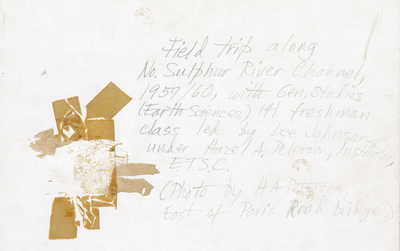 Field trip along
No. Sulphur River Channel,
1959/60, with Gen. Studies
(Earth Sciences) 141 freshman
class led by Lee Johnson,
under A. Peterson, Instructor,
E.T.S.C.
(Photo by H A Peterson,
East of Paris Road bridge)